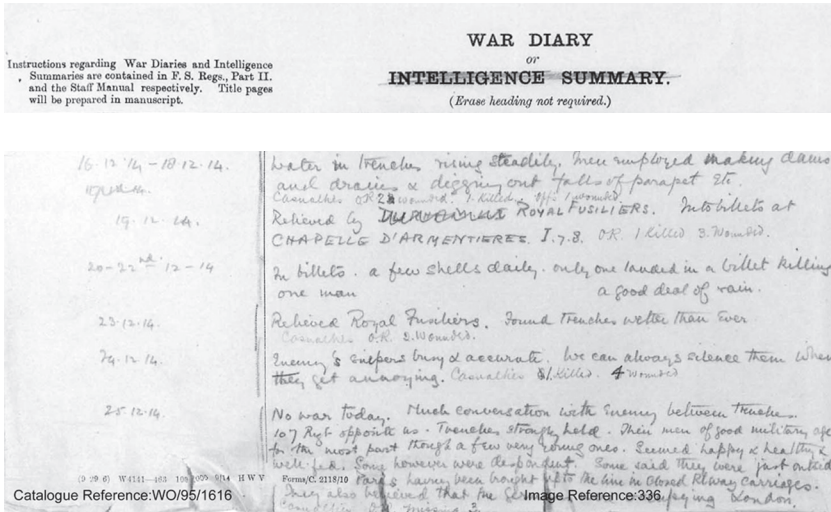 WAR DIARY
or
INTELLIGENCE SUMMARY.
(Erase heading not required.)
Instructions regarding War Diaries and Intelligence
Summaries are contained in F. S. Regs., Part II.
and the Staff Manual respectively. Title pages
will be prepared in manuscript.
16.12.14 – 18.12.14. Water in trenches rising steadily. Men employed making dams
and drains & digging out falls of parapet etc.
Casualties O.R. wounded. 1 Killed. 1 wounded
19.12.14. Relieved by ROYAL FUSILIERS. Into billets at
CHAPELLE D'ARMENTIERES. I.7.8. O.R. 1 Killed 3 Wounded.
20–22nd–12–14 In billets. a few shells daily. only one landed in a billet killing
one man a good deal of rain.
23.12.14. Relieved Royal Fusiliers. Found trenches wetter than ever
Casualties O.R. 2 Wounded.
24.12.14. Enemy's snipers busy & accurate. We can always silence them when
they get annoying. Casualties 1 Killed. 4 wounded
25.12.14. No war today. Much conversation with Enemy between trenches.
107 Regt opposite us. Trenches strongly held. Their men of good military age
for the most part though a few very young ones. Seemed happy & healthy &
well fed. Some however were despondent. Some said they were just outside
Paris having been brought up to the line in closed Rlway carriages.
They also believed that the London.
(9 29 6) W4141—463 9/14 H W V Forms/C. 2118/10
Catalogue Reference:WO/95/1616
Image Reference:336